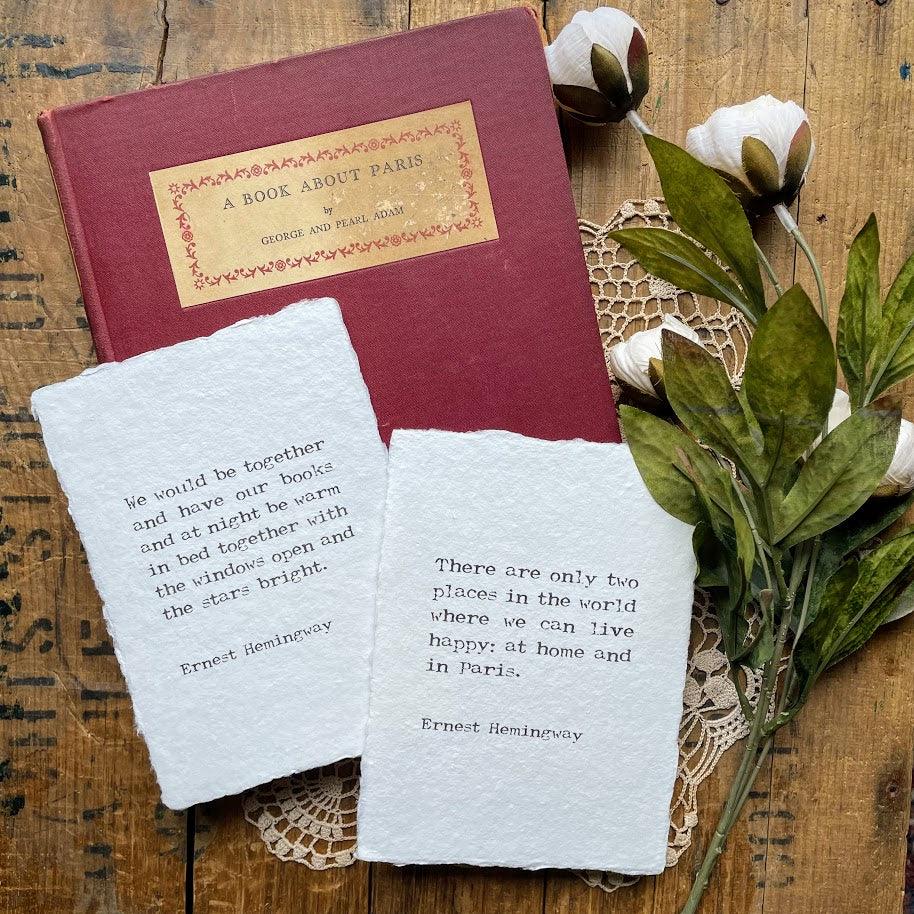 A BOOK ABOUT PARIS
by
GEORGE AND PEARL ADAM
We would be together
and have our books
and at night be warm
in bed together with
the windows open and
the stars bright.
Ernest Hemingway
There are only two
places in the world
where we can live
happy: at home and
in Paris.
Ernest Hemingway